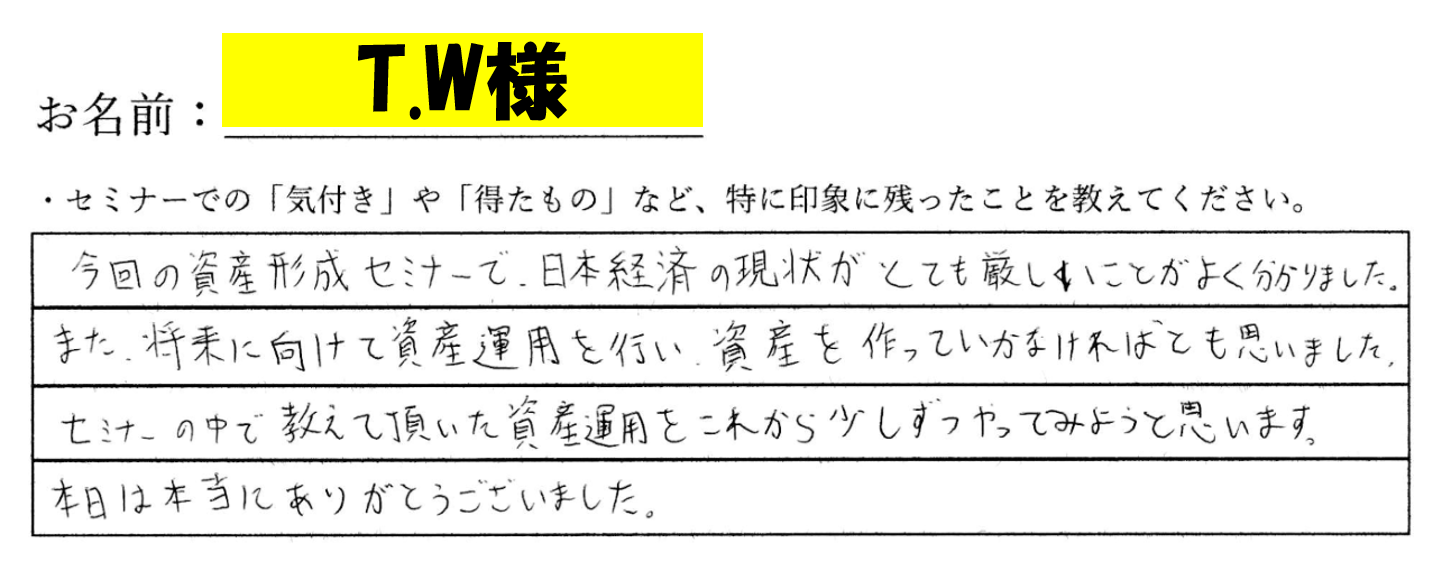 お名前：T.W様
・セミナーでの「気付き」や「得たもの」など、特に印象に残ったことを教えてください。
今回の資産形成セミナーで、日本経済の現状がとても厳しいことがよく分かりました。
また、将来に向けて資産運用を行い、資産を作っていかなければとも思いました。
セミナーの中で教えて頂いた資産運用をこれから少しずつやってみようと思います。
本日は本当にありがとうございました。